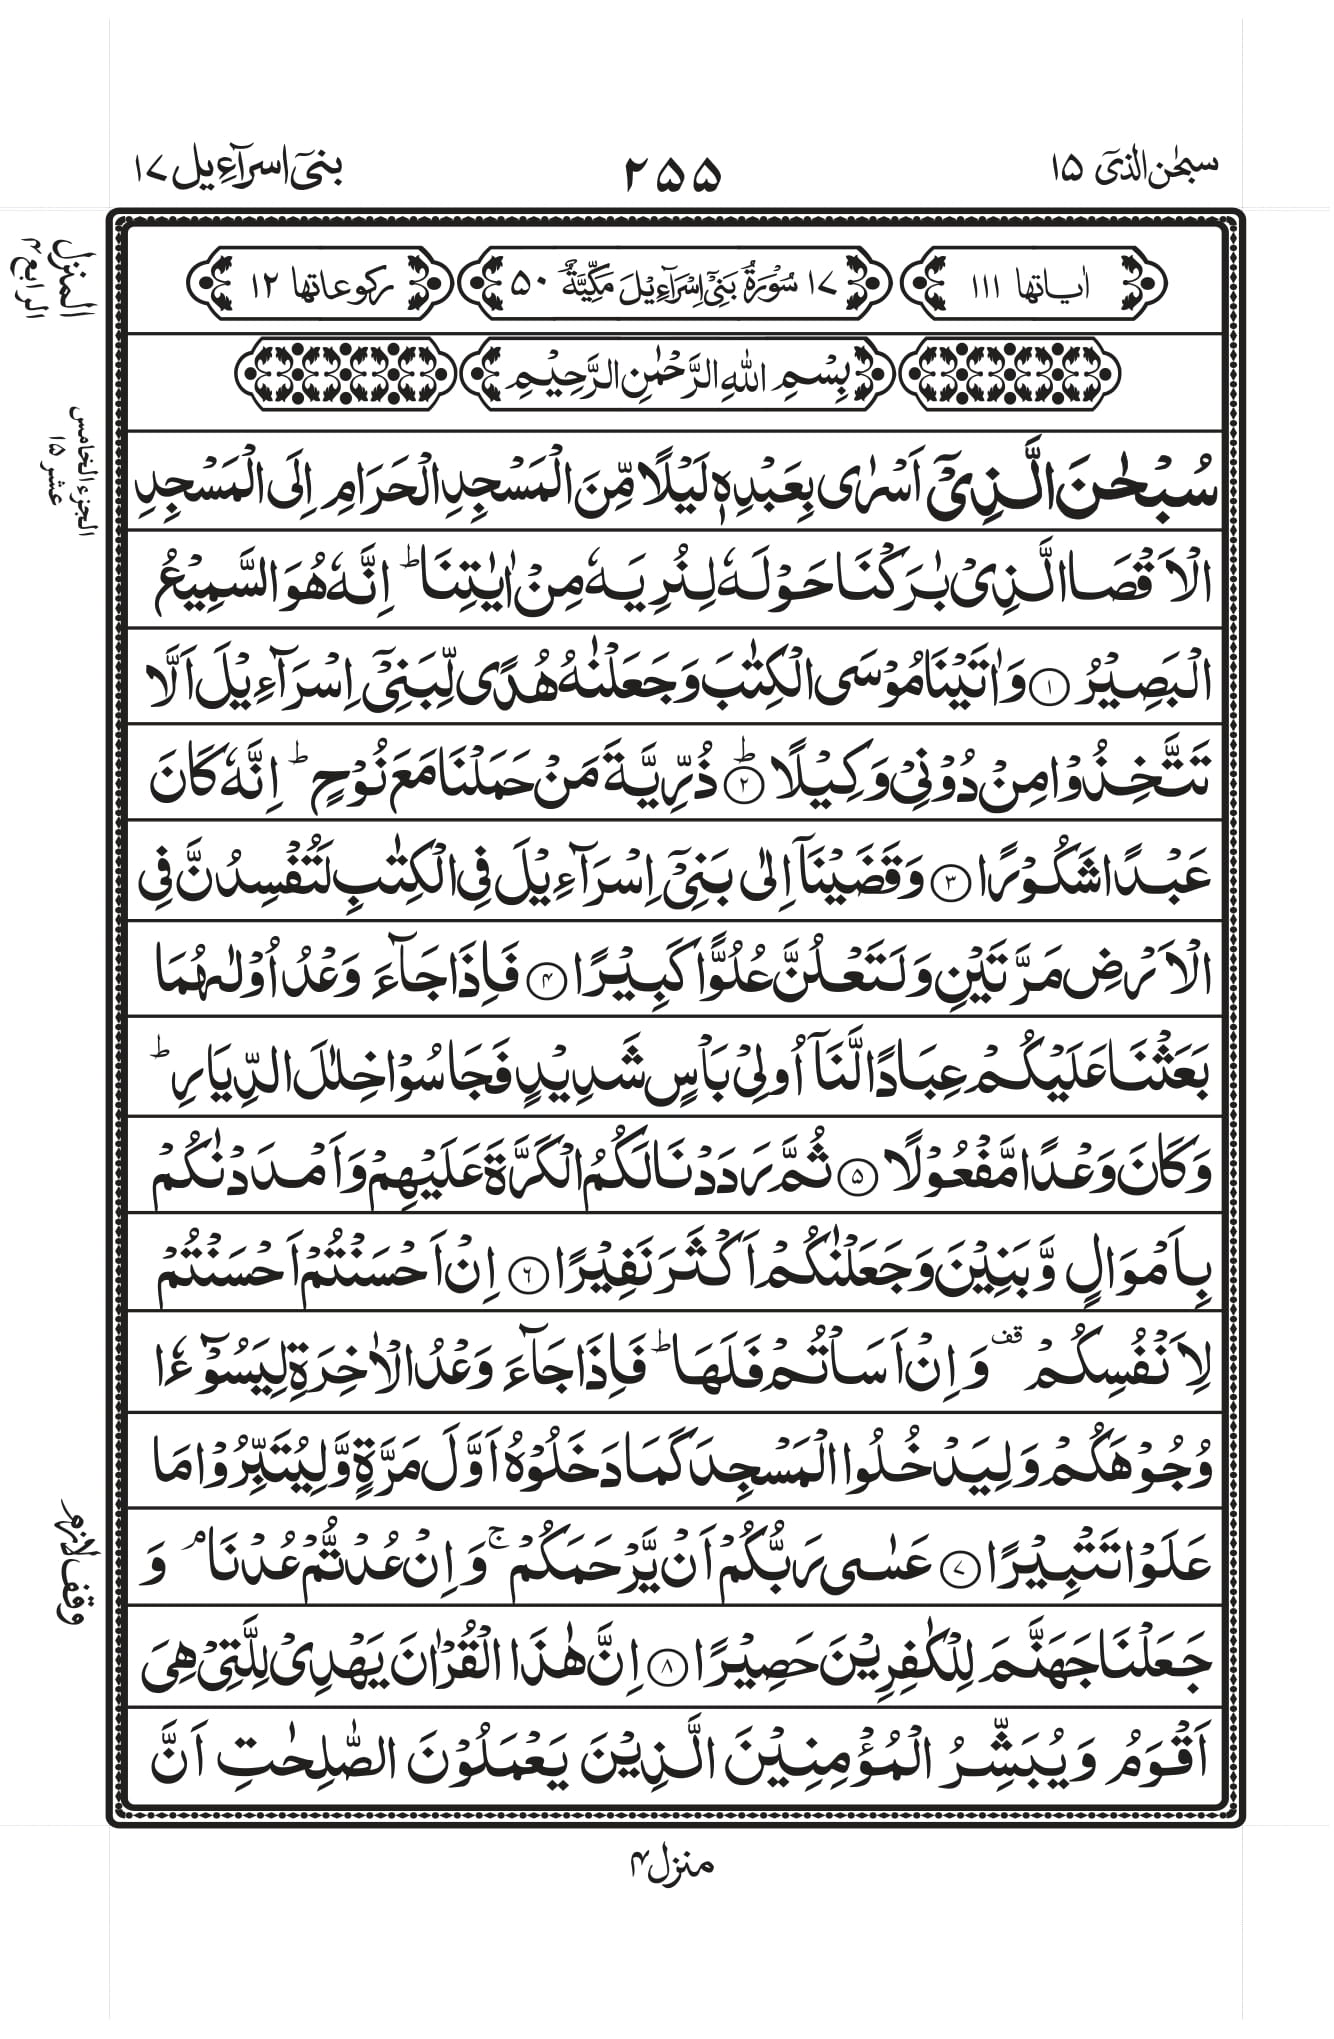 سبحٰن الذیٓ ۱۵
۲۵۵
بنیٓ اسرآءیل ۱۷
اٰیاتها ۱۱۱
۱۷ سُوْرَةُ بَنِیْۤ اِسْرَآءِیْلَ مَکِّیَّةٌ ۵۰
رکوعاتها ۱۲
بِسْمِ اللّٰهِ الرَّحْمٰنِ الرَّحِیْمِ
سُبْحٰنَ الَّذِیْۤ اَسْرٰی بِعَبْدِهٖ لَیْلًا مِّنَ الْمَسْجِدِ الْحَرَامِ اِلَی الْمَسْجِدِ
الْاَقْصَا الَّذِیْ بٰرَكْنَا حَوْلَهٗ لِنُرِیَهٗ مِنْ اٰیٰتِنَا ؕ اِنَّهٗ هُوَ السَّمِیْعُ
الْبَصِیْرُ ۝۱ وَ اٰتَیْنَا مُوْسَی الْكِتٰبَ وَ جَعَلْنٰهُ هُدًی لِّبَنِیْۤ اِسْرَآءِیْلَ اَلَّا
تَتَّخِذُوْا مِنْ دُوْنِیْ وَكِیْلًا ؕ۝۲ ذُرِّیَّةَ مَنْ حَمَلْنَا مَعَ نُوْحٍ ؕ اِنَّهٗ كَانَ
عَبْدًا شَكُوْرًا ۝۳ وَ قَضَیْنَاۤ اِلٰی بَنِیْۤ اِسْرَآءِیْلَ فِی الْكِتٰبِ لَتُفْسِدُنَّ فِی
الْاَرْضِ مَرَّتَیْنِ وَ لَتَعْلُنَّ عُلُوًّا كَبِیْرًا ۝۴ فَاِذَا جَآءَ وَعْدُ اُوْلٰىهُمَا
بَعَثْنَا عَلَیْكُمْ عِبَادًا لَّنَاۤ اُولِیْ بَاْسٍ شَدِیْدٍ فَجَاسُوْا خِلٰلَ الدِّیَارِ ؕ
وَ كَانَ وَعْدًا مَّفْعُوْلًا ۝۵ ثُمَّ رَدَدْنَا لَكُمُ الْكَرَّةَ عَلَیْهِمْ وَ اَمْدَدْنٰكُمْ
بِاَمْوَالٍ وَّ بَنِیْنَ وَ جَعَلْنٰكُمْ اَكْثَرَ نَفِیْرًا ۝۶ اِنْ اَحْسَنْتُمْ اَحْسَنْتُمْ
لِاَنْفُسِكُمْ ۫ قف وَ اِنْ اَسَاْتُمْ فَلَهَا ؕ فَاِذَا جَآءَ وَعْدُ الْاٰخِرَةِ لِیَسُوْٓءٗا
وُجُوْهَكُمْ وَ لِیَدْخُلُوا الْمَسْجِدَ كَمَا دَخَلُوْهُ اَوَّلَ مَرَّةٍ وَّ لِیُتَبِّرُوْا مَا
عَلَوْا تَتْبِیْرًا ۝۷ عَسٰی رَبُّكُمْ اَنْ یَّرْحَمَكُمْ ۚ وَ اِنْ عُدْتُّمْ عُدْنَا ۘ وَ
جَعَلْنَا جَهَنَّمَ لِلْكٰفِرِیْنَ حَصِیْرًا ۝۸ اِنَّ هٰذَا الْقُرْاٰنَ یَهْدِیْ لِلَّتِیْ هِیَ
اَقْوَمُ وَ یُبَشِّرُ الْمُؤْمِنِیْنَ الَّذِیْنَ یَعْمَلُوْنَ الصّٰلِحٰتِ اَنَّ
المنزل
الرابع ۴
الجزء الخامس
عشر ۱۵
وقف لازم
منزل ۴